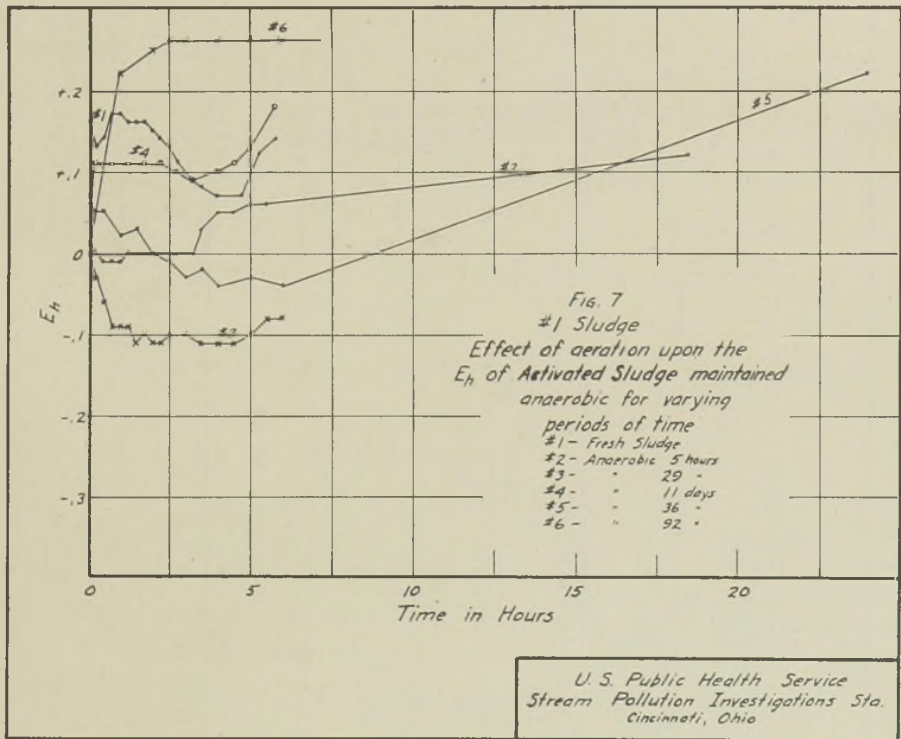 #6
+.2
#1
#5
#4
+.1
0
E_h
-.1
-.2
-.3
Fig. 7
#1 Sludge
Effect of aeration upon the
E_h of Activated Sludge maintained
anaerobic for varying
periods of time
#1 - Fresh Sludge
#2 - Anaerobic 5 hours
#3 - " 29 "
#4 - " 11 days
#5 - " 36 "
#6 - " 92 "
0 5 10 15 20
Time in Hours
U. S. Public Health Service
Stream Pollution Investigations Sta.
Cincinnati, Ohio